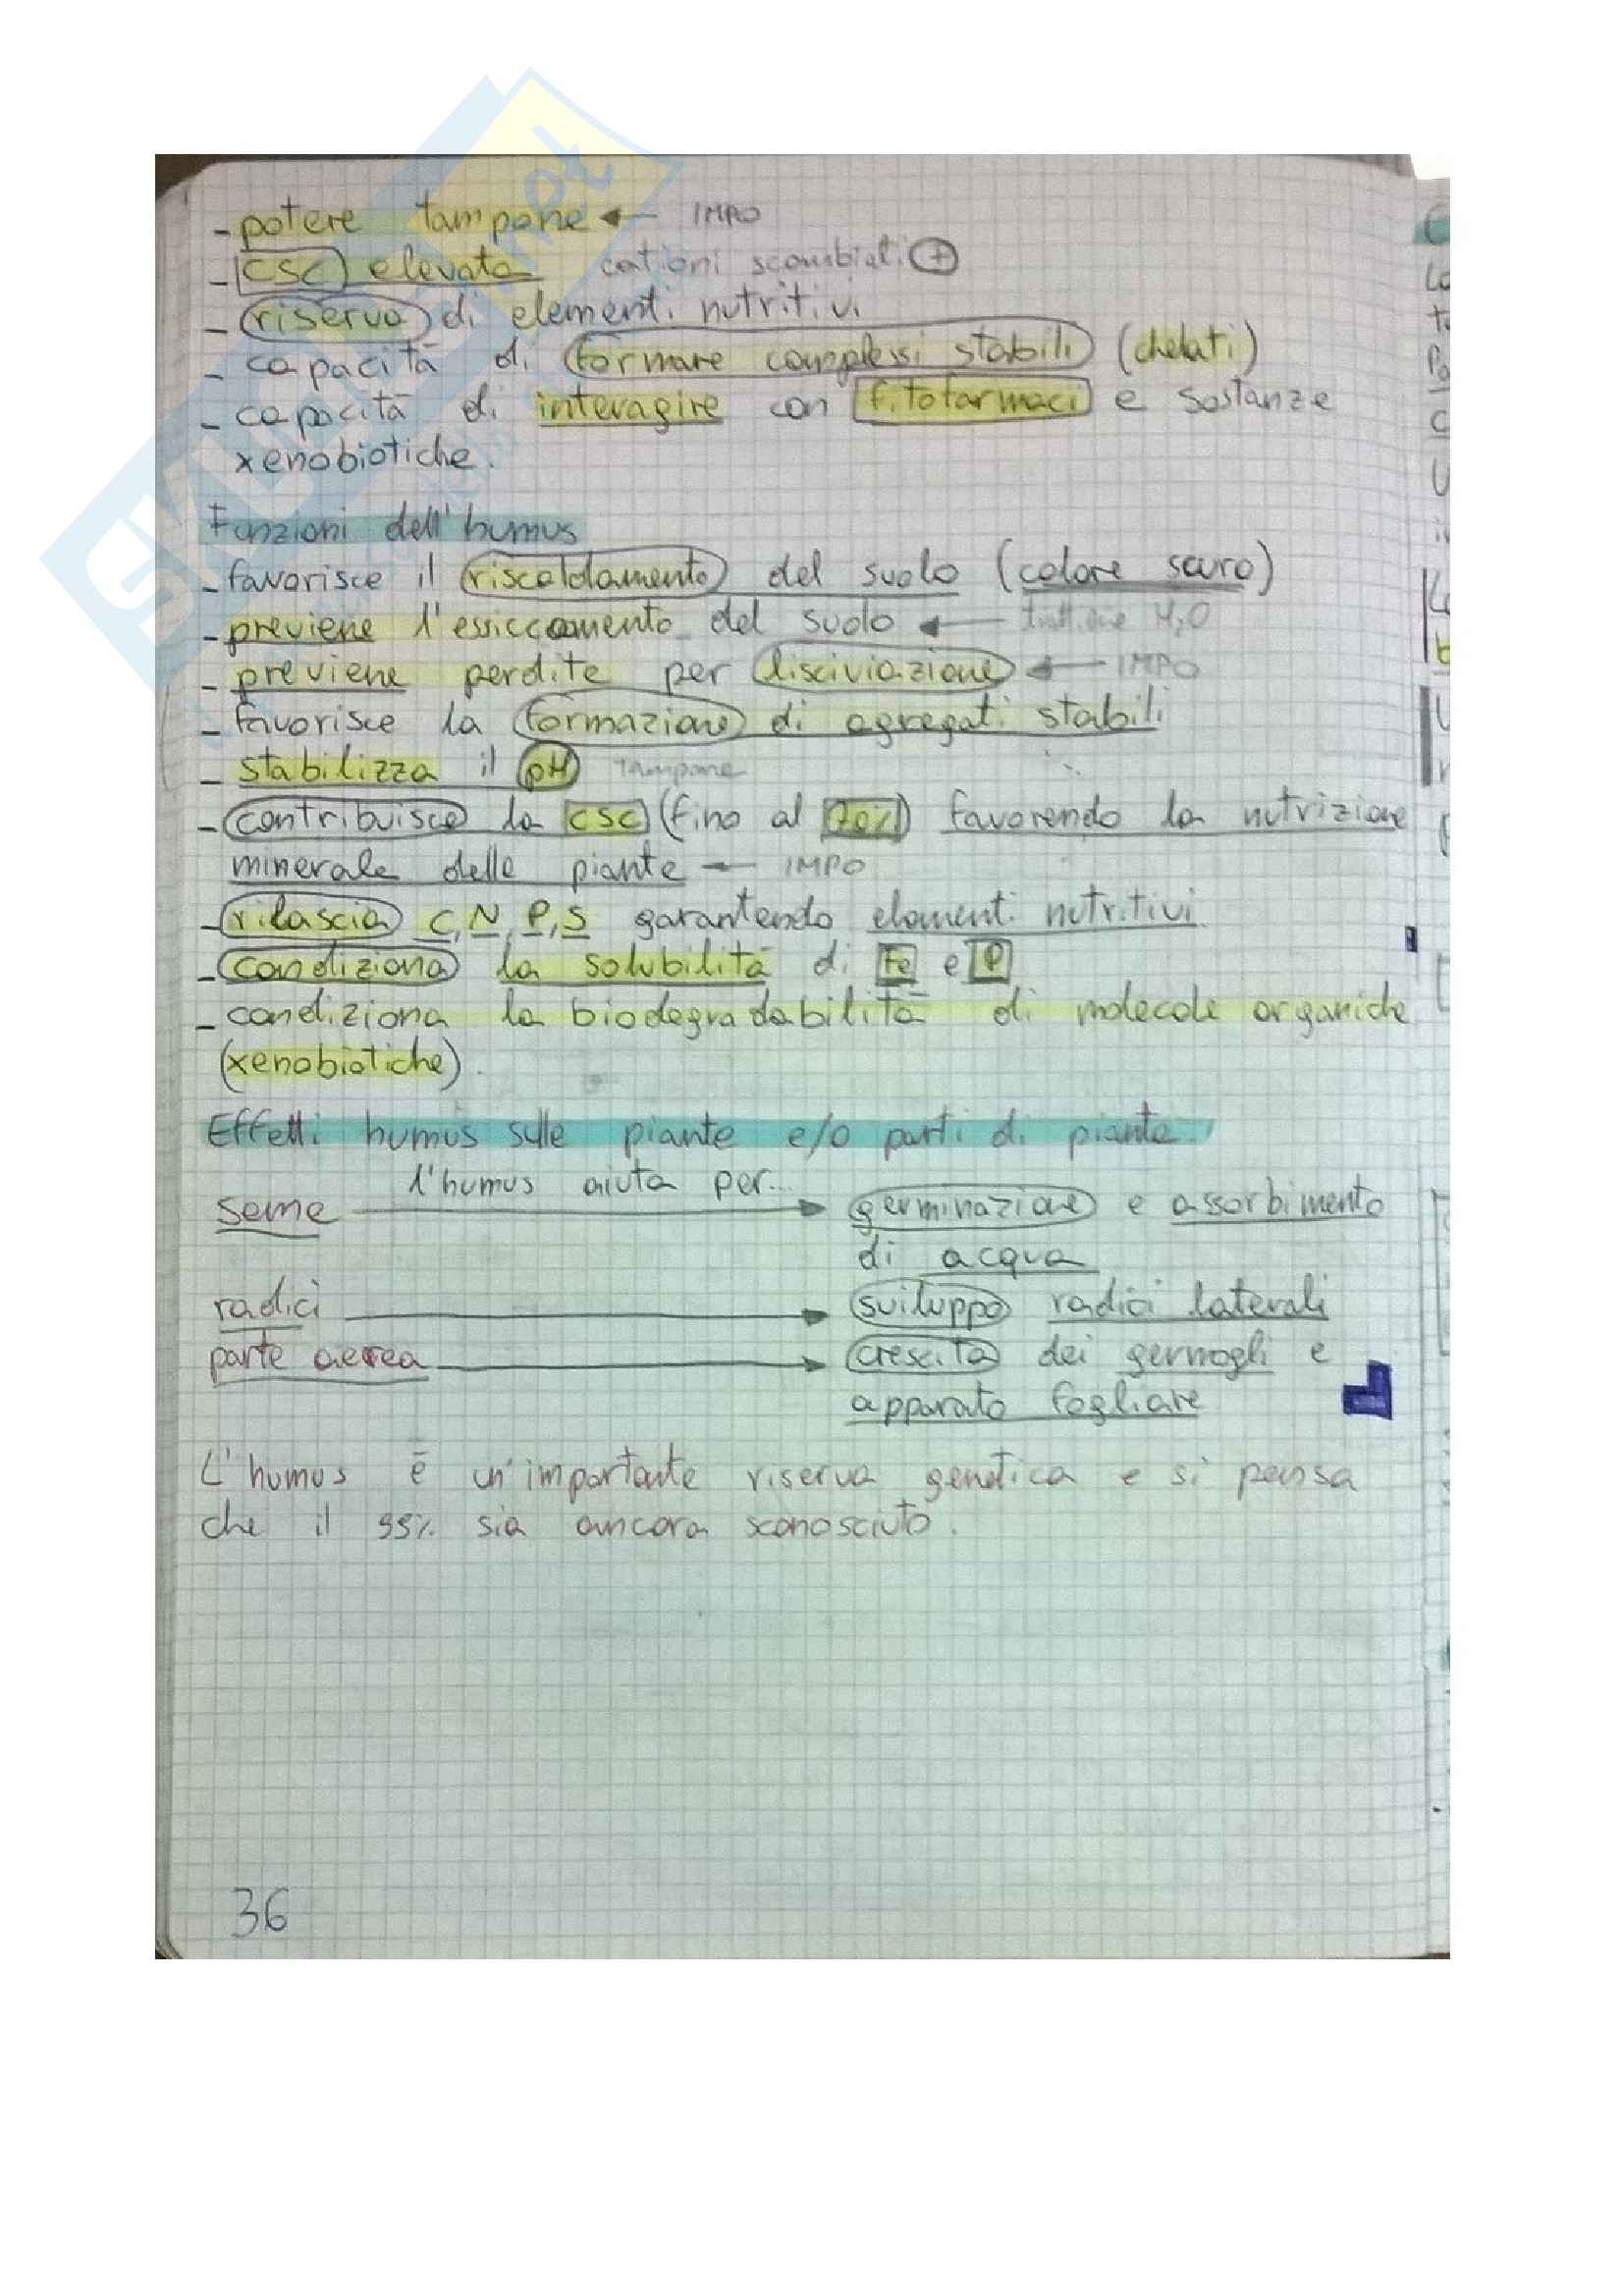 - potere tampone ← IMPO
- CSC elevata cationi scambiati +
- riserva di elementi nutritivi
- capacità di formare complessi stabili (chelati)
- capacità di interagire con fitofarmaci e sostanze
xenobiotiche.
Funzioni dell'humus
- favorisce il riscaldamento del suolo (colore scuro)
- previene l'essiccamento del suolo ← H2O
- previene perdite per lisciviazione ← IMPO
- favorisce la formazione di agregati stabili
- stabilizza il pH tampone
- contribuisce la CSC (fino al 70%) favorendo la nutrizione
minerale delle piante ← IMPO
- rilascia C, N, P, S garantendo elementi nutritivi.
- condiziona la solubilità di Fe e P
- condiziona la biodegradabilità di molecole organiche
(xenobiotiche).
Effetti humus sulle piante e/o parti di piante.
l'humus aiuta per...
seme → germinazione e assorbimento
di acqua
radici → sviluppo radici laterali
parte aerea → crescita dei germogli e
apparato fogliare
L'humus è un'importante riserva genetica e si pensa
che il 99% sia ancora sconosciuto.
36